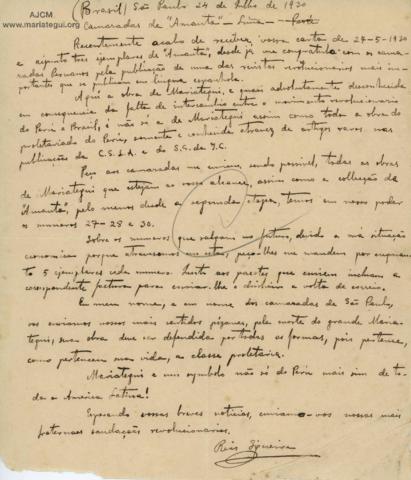 AJCM
www.mariategui.org
(Brasil) São Paulo 24 de Julho de 1930
Camaradas de "Amauta" - Lima - Perú
Recentemente acabo de receber vossa carta de 29-5-1930
e exemplares de "Amauta", desde já me congratulo com os cama-
radas Peruanos pela publicação de uma das revistas revolucionarias mais im-
portantes que se publicam em lingua española.
Aqui a obra de Mariategui, é quasi absolutamente desconhecida
em consequencia da falta de intercambio entre o movimento revolucionario
do Perú e Brasil, é não só a de Mariategui assim como toda a obra do
proletariado do Perú, somente é conhecida atravez de artigos raros nas
publicações da C.S.L.A. e do S.S. da I.C.
Peço aos camaradas me enviem, sendo possivel, todas as obras
de Mariategui que estejam ao vosso alcance, assim como a collecção da
"Amauta", pelo menos desde a segunda etapa, temos em nosso poder
os numeros 27-28 e 30.
Sobre os numeros que saiam no futuro, devido a má situação
economica porque atravessamos, peço-lhes me mandem por enquan-
to 5 exemplares cada numero. Junto aos pacotes que enviem incluam a
correspondente factura para enviar-lhe o dinheiro a volta de correio.
Em meu nome, e em nome dos camaradas de São Paulo,
vos enviamos nossos mais sentidos pezames, pela morte do grande Maria-
tegui, sua obra deve ser defendida por todas as formas, pois pertence,
como pertenceu sua vida, a classe proletaria.
Mariategui é um symbolo não só do Perú mais sim de to-
da a America Latina!
Esperando vossas breves noticias, enviamo-vos nossas mais
fraternaes saudações revolucionarias.
Reis